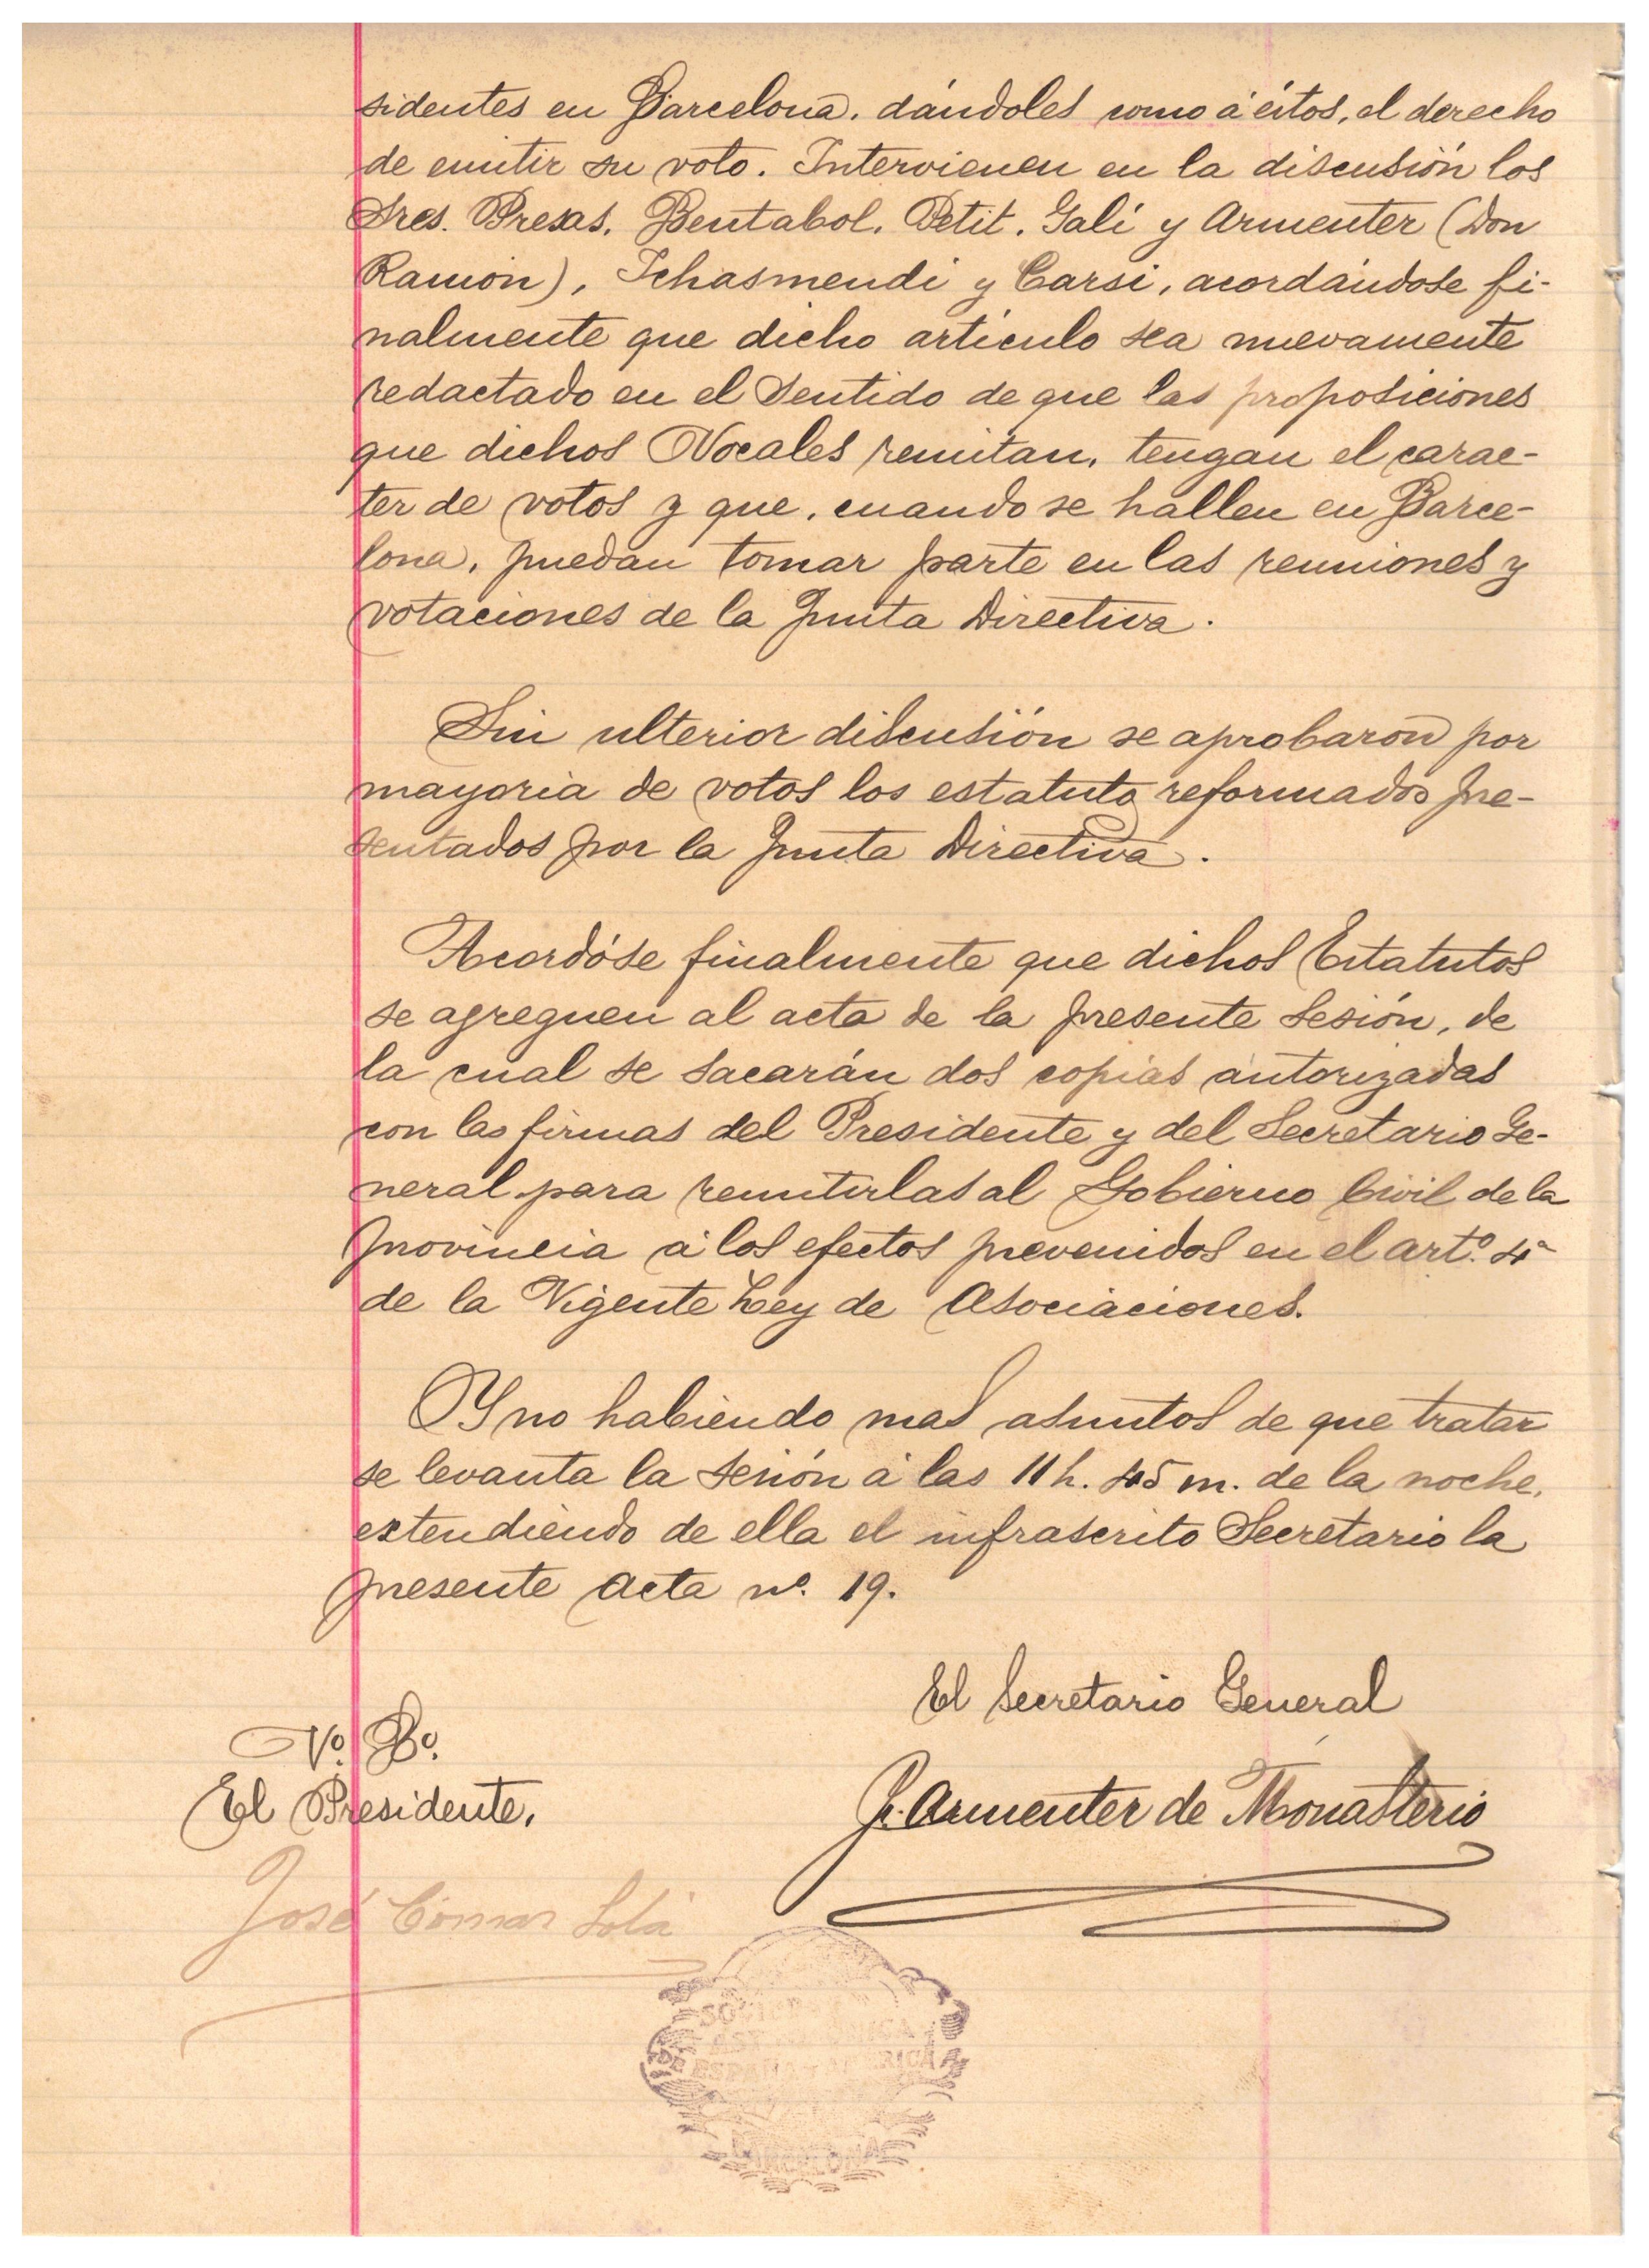 sidentes en Barcelona, dándoles como á éstos, el derecho
de emitir su voto. Intervienen en la discusión los
Sres. Presas, Bentabol, Petit, Galí y Armenter (Don
Ramón), Ichasmendi y Carsi, acordándose fi-
nalmente que dicho artículo sea nuevamente
redactado en el sentido de que las proposiciones
que dichos Vocales remitan, tengan el carac-
ter de votos y que, cuando se hallen en Barce-
lona, puedan tomar parte en las reuniones y
votaciones de la Junta Directiva.
Sin ulterior discusión se aprobaron por
mayoría de votos los estatutos reformados pre-
sentados por la Junta Directiva.
Acordóse finalmente que dichos Estatutos
se agreguen al acta de la presente sesión, de
la cual se sacarán dos copias autorizadas
con las firmas del Presidente y del Secretario Ge-
neral para remitirlas al Gobierno Civil de la
Provincia á los efectos prevenidos en el artº. 4º
de la Vigente Ley de Asociaciones.
Y no habiendo mas asuntos de que tratar
se levanta la sesión á las 11 h. 45 m. de la noche,
extendiendo de ella el infrascrito Secretario la
presente acta nº. 19.
El Secretario General
Vº. Bº.
El Presidente,
J. Armenter de Monasterio
José Comas Solá
SOCIEDAD
ASTRONÓMICA
DE ESPAÑA Y AMÉRICA
BARCELONA